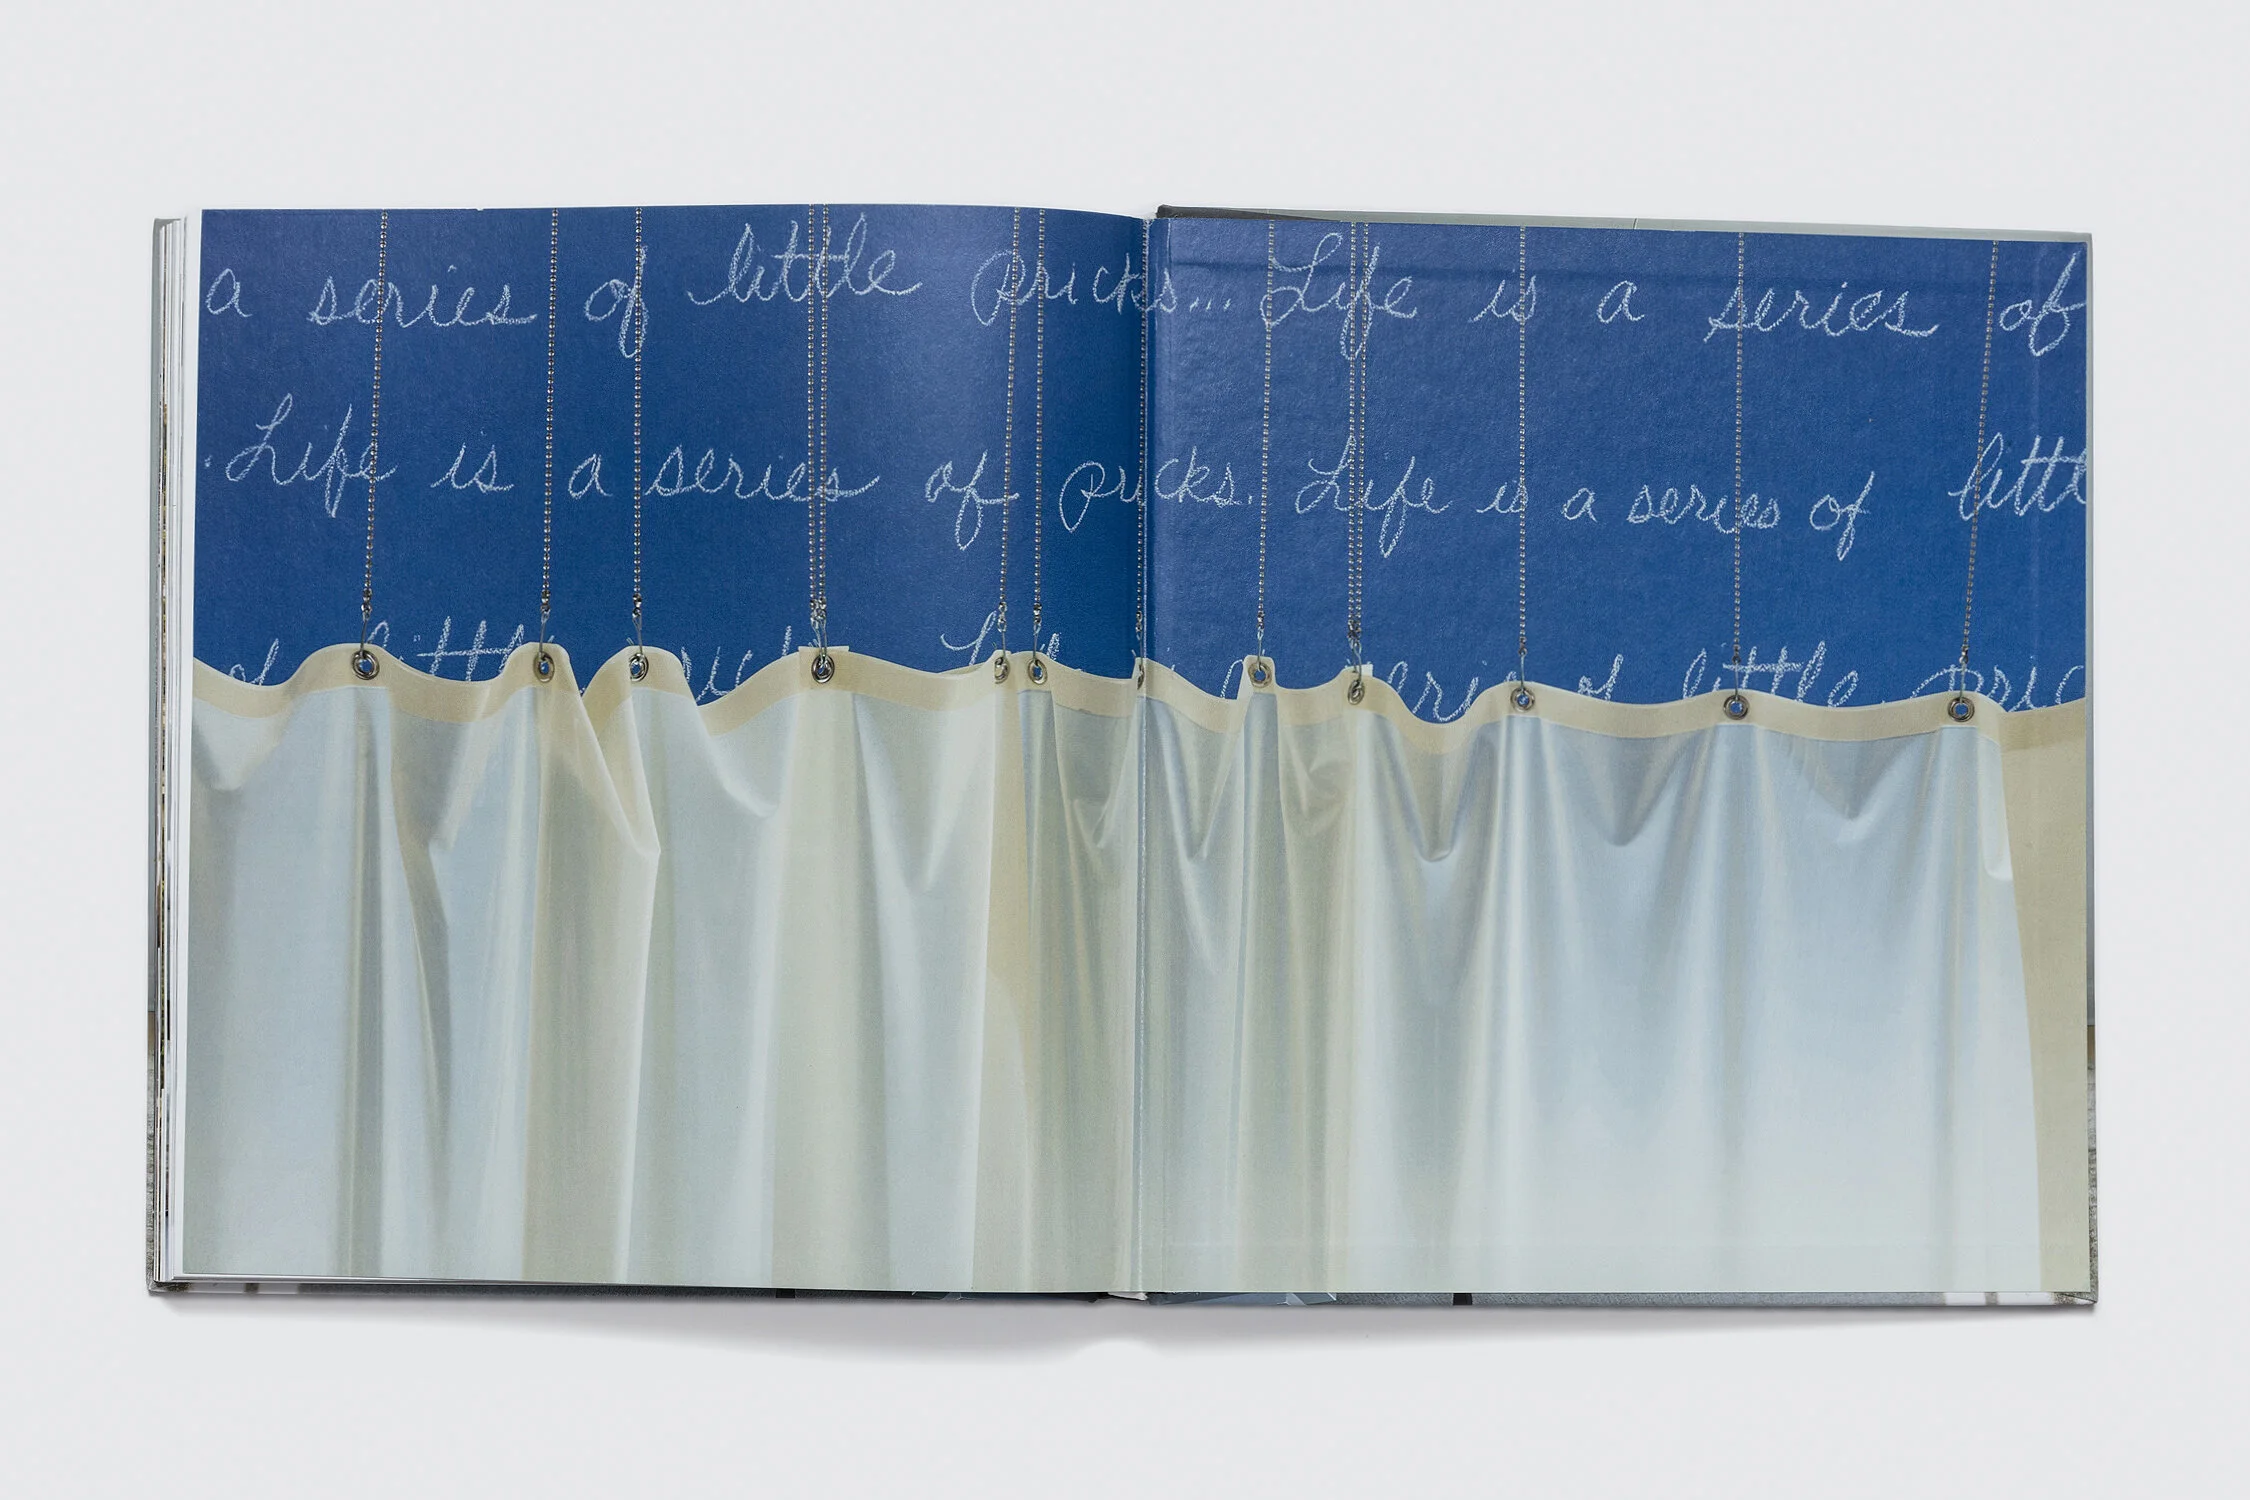 a series of little pricks... Life is a series of
. Life is a series of pricks. Life is a series of
of little
series of little